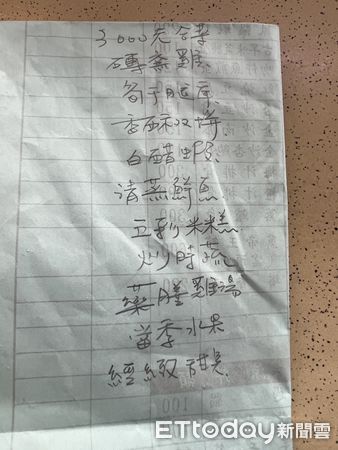 3000元合菜
磚窯雞
筍干腿庫
香酥双拼
白醋蝦
清蒸鮮魚
五彩米糕
炒時蔬
藥膳雞湯
當季水果
經緻甜點
100
ETtoday新聞雲